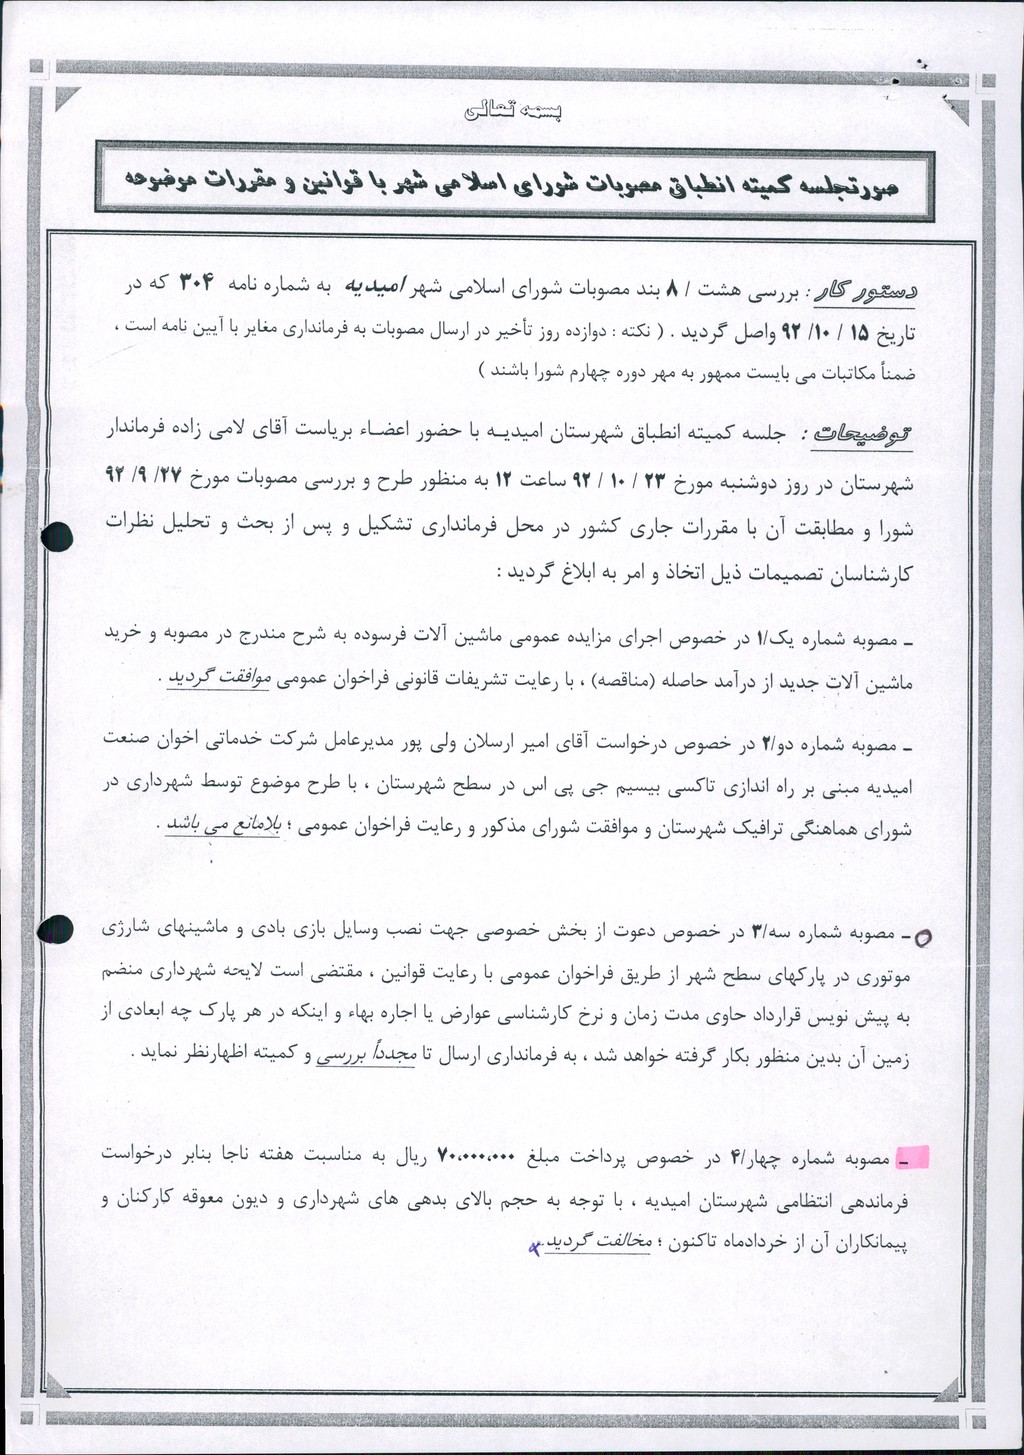 بسمه تعالی
صورتجلسه کمیته انطباق مصوبات شورای اسلامی شهر با قوانین و مقررات موضوعه
دستور کار : بررسی هشت / ۸ بند مصوبات شورای اسلامی شهر امیدیه به شماره نامه ۳۰۴ که در
تاریخ ۱۵ / ۱۰/ ۹۲ واصل گردید . ( نکته : دوازده روز تأخیر در ارسال مصوبات به فرمانداری مغایر با آیین نامه است ،
ضمناً مکاتبات می بایست ممهور به مهر دوره چهارم شورا باشند )
توضیحات : جلسه کمیته انطباق شهرستان امیدیـه با حضور اعضـاء بریاست آقای لامی زاده فرماندار
شهرستان در روز دوشنبه مورخ ۲۳ / ۱۰ / ۹۲ ساعت ۱۲ به منظور طرح و بررسی مصوبات مورخ ۲۷/ ۹/ ۹۲
شورا و مطابقت آن با مقررات جاری کشور در محل فرمانداری تشکیل و پس از بحث و تحلیل نظرات
کارشناسان تصمیمات ذیل اتخاذ و امر به ابلاغ گردید :
ـ مصوبه شماره یک/۱ در خصوص اجرای مزایده عمومی ماشین آلات فرسوده به شرح مندرج در مصوبه و خرید
ماشین آلات جدید از درآمد حاصله (مناقصه) ، با رعایت تشریفات قانونی فراخوان عمومی موافقت گردید .
ـ مصوبه شماره دو/۲ در خصوص درخواست آقای امیر ارسلان ولی پور مدیرعامل شرکت خدماتی اخوان صنعت
امیدیه مبنی بر راه اندازی تاکسی بیسیم جی پی اس در سطح شهرستان ، با طرح موضوع توسط شهرداری در
شورای هماهنگی ترافیک شهرستان و موافقت شورای مذکور و رعایت فراخوان عمومی ؛ بلامانع می باشد .
ـ مصوبه شماره سه/۳ در خصوص دعوت از بخش خصوصی جهت نصب وسایل بازی بادی و ماشینهای شارژی
موتوری در پارکهای سطح شهر از طریق فراخوان عمومی با رعایت قوانین ، مقتضی است لایحه شهرداری منضم
به پیش نویس قرارداد حاوی مدت زمان و نرخ کارشناسی عوارض یا اجاره بهاء و اینکه در هر پارک چه ابعادی از
زمین آن بدین منظور بکار گرفته خواهد شد ، به فرمانداری ارسال تا مجدداً بررسی و کمیته اظهارنظر نماید .
ـ مصوبه شماره چهار/۴ در خصوص پرداخت مبلغ ۷۰،۰۰۰،۰۰۰ ریال به مناسبت هفته ناجا بنابر درخواست
فرماندهی انتظامی شهرستان امیدیه ، با توجه به حجم بالای بدهی های شهرداری و دیون معوقه کارکنان و
پیمانکاران آن از خردادماه تاکنون ؛ مخالفت گردید.